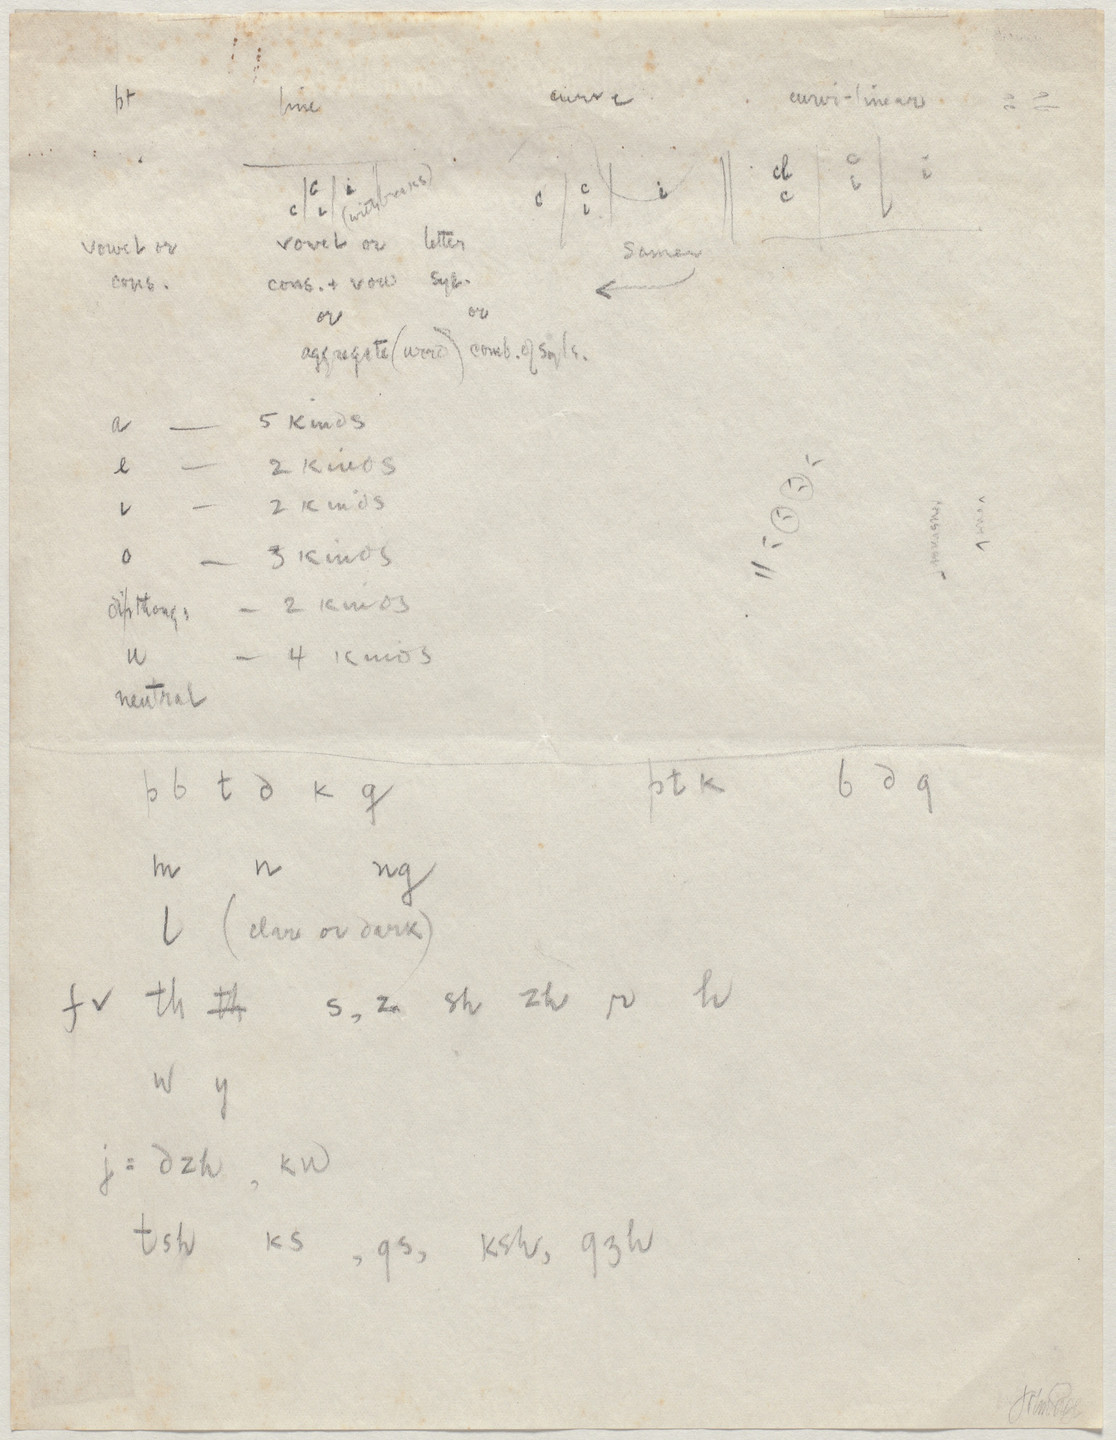 pt line curve curvi-linear
c c i c c i i cl c c i i i
(with breaks)
vowel or vowel or letter same
cons. cons. + vow syl.
or or
aggregate (word) comb. of syls.
a — 5 kinds
e — 2 kinds
i — 2 kinds
o — 3 kinds
dipthongs — 2 kinds
u — 4 kinds
neutral
p b t d k g p t k b d g
m n ng
l (clear or dark)
f v th th s, z sh zh r h
w y
j = dzh , kw
tsh ks , gs, ksh, gzh